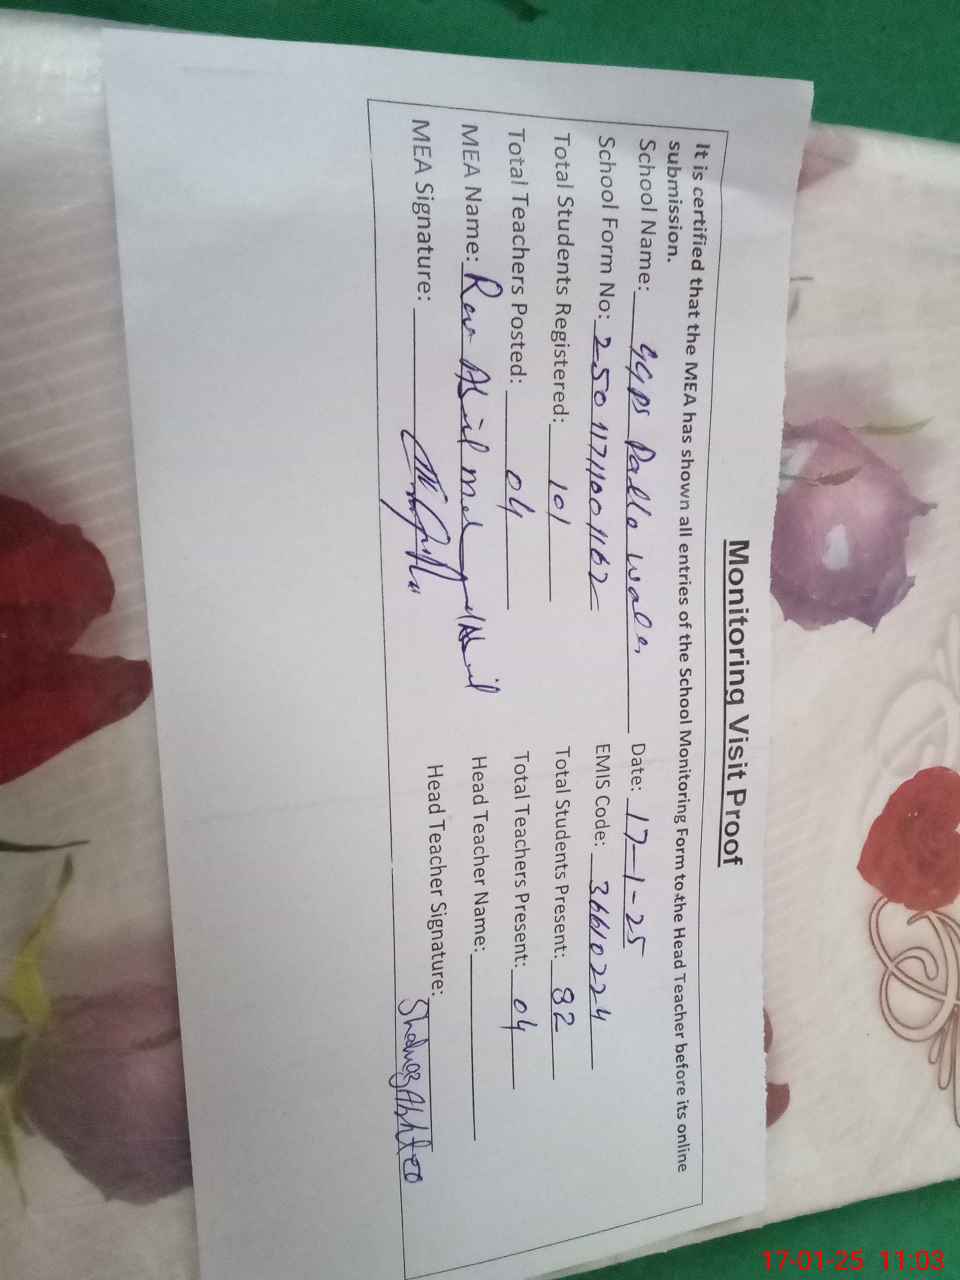 Monitoring Visit Proof
It is certified that the MEA has shown all entries of the School Monitoring Form to the Head Teacher before its online
submission.
School Name: GGPS Dalle wala Date: 17-1-25
School Form No: 25011711001162 EMIS Code: 36610224
Total Students Registered: 101 Total Students Present: 82
Total Teachers Posted: 04 Total Teachers Present: 04
MEA Name: Head Teacher Name:
MEA Signature: Head Teacher Signature:
17-01-25 11:03